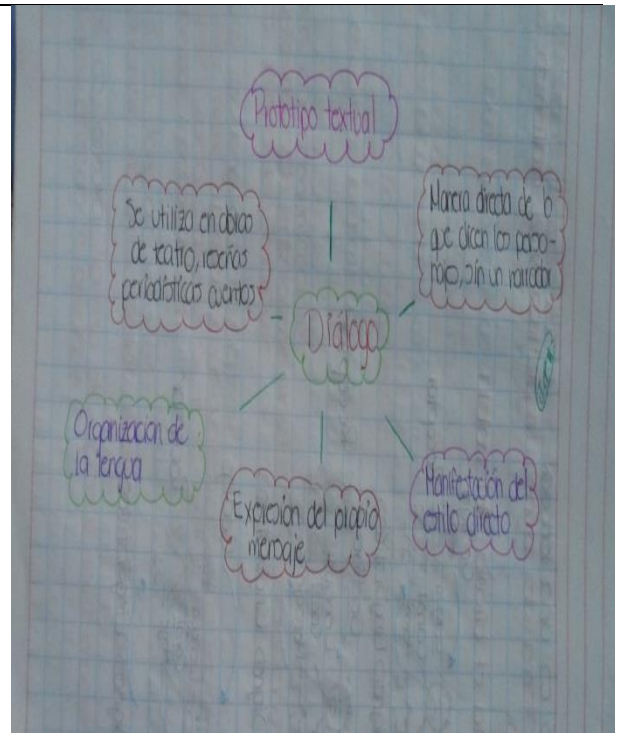 Prototipo textual
Se utiliza en obras
de teatro, reseñas
periodísticas cuentos
Manera directa de lo
que dicen los perso-
najes, sin un narrador
Diálogo
Organización de
la lengua
Expresión del propio
mensaje
Manifestación del
estilo directo